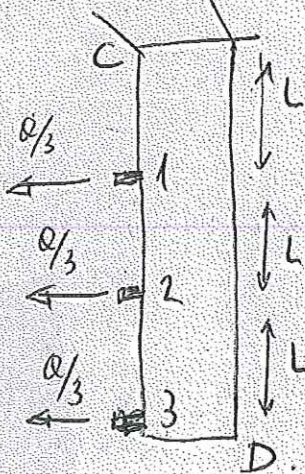 C
L
Q/3
1
Q/3
2
L
Q/3
3
L
D